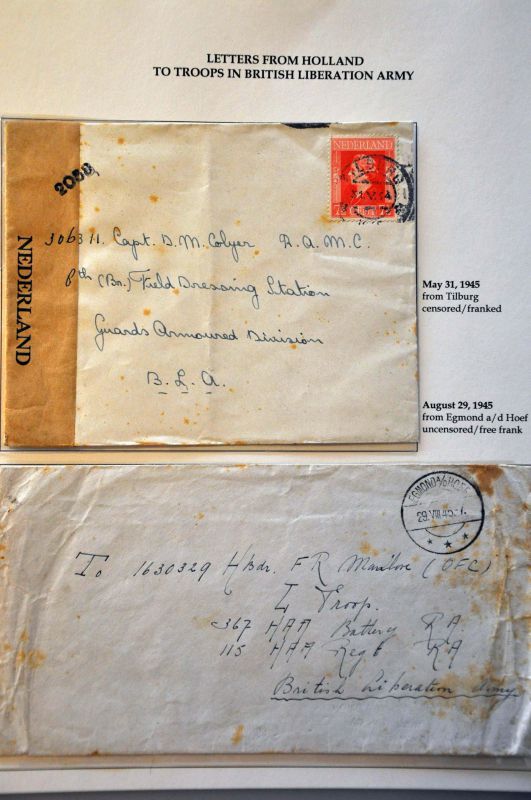 LETTERS FROM HOLLAND
TO TROOPS IN BRITISH LIBERATION ARMY
NEDERLAND
NEDERLAND
306311. Capt. D. M. Colyer R.A.M.C.
8th (Br.) Field Dressing Station
Guards Armoured Division
B. L. A.
May 31, 1945
from Tilburg
censored/franked
August 29, 1945
from Egmond a/d Hoef
uncensored/free frank
EGMOND A/D HOEF
29.VIII.45
To 1630329 F R (OFC)
Troop.
367 HAA Battery RA
115 HAA Regt RA
British Liberation Army